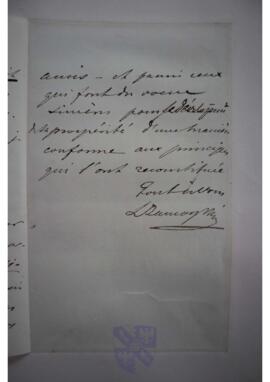 amis – et parmi ceux
qui font des voeux
sincères pour le
de la prospérité d'une
conforme aux principes
qui l'ont reconstituée
Tout à vous
L Zamoyski